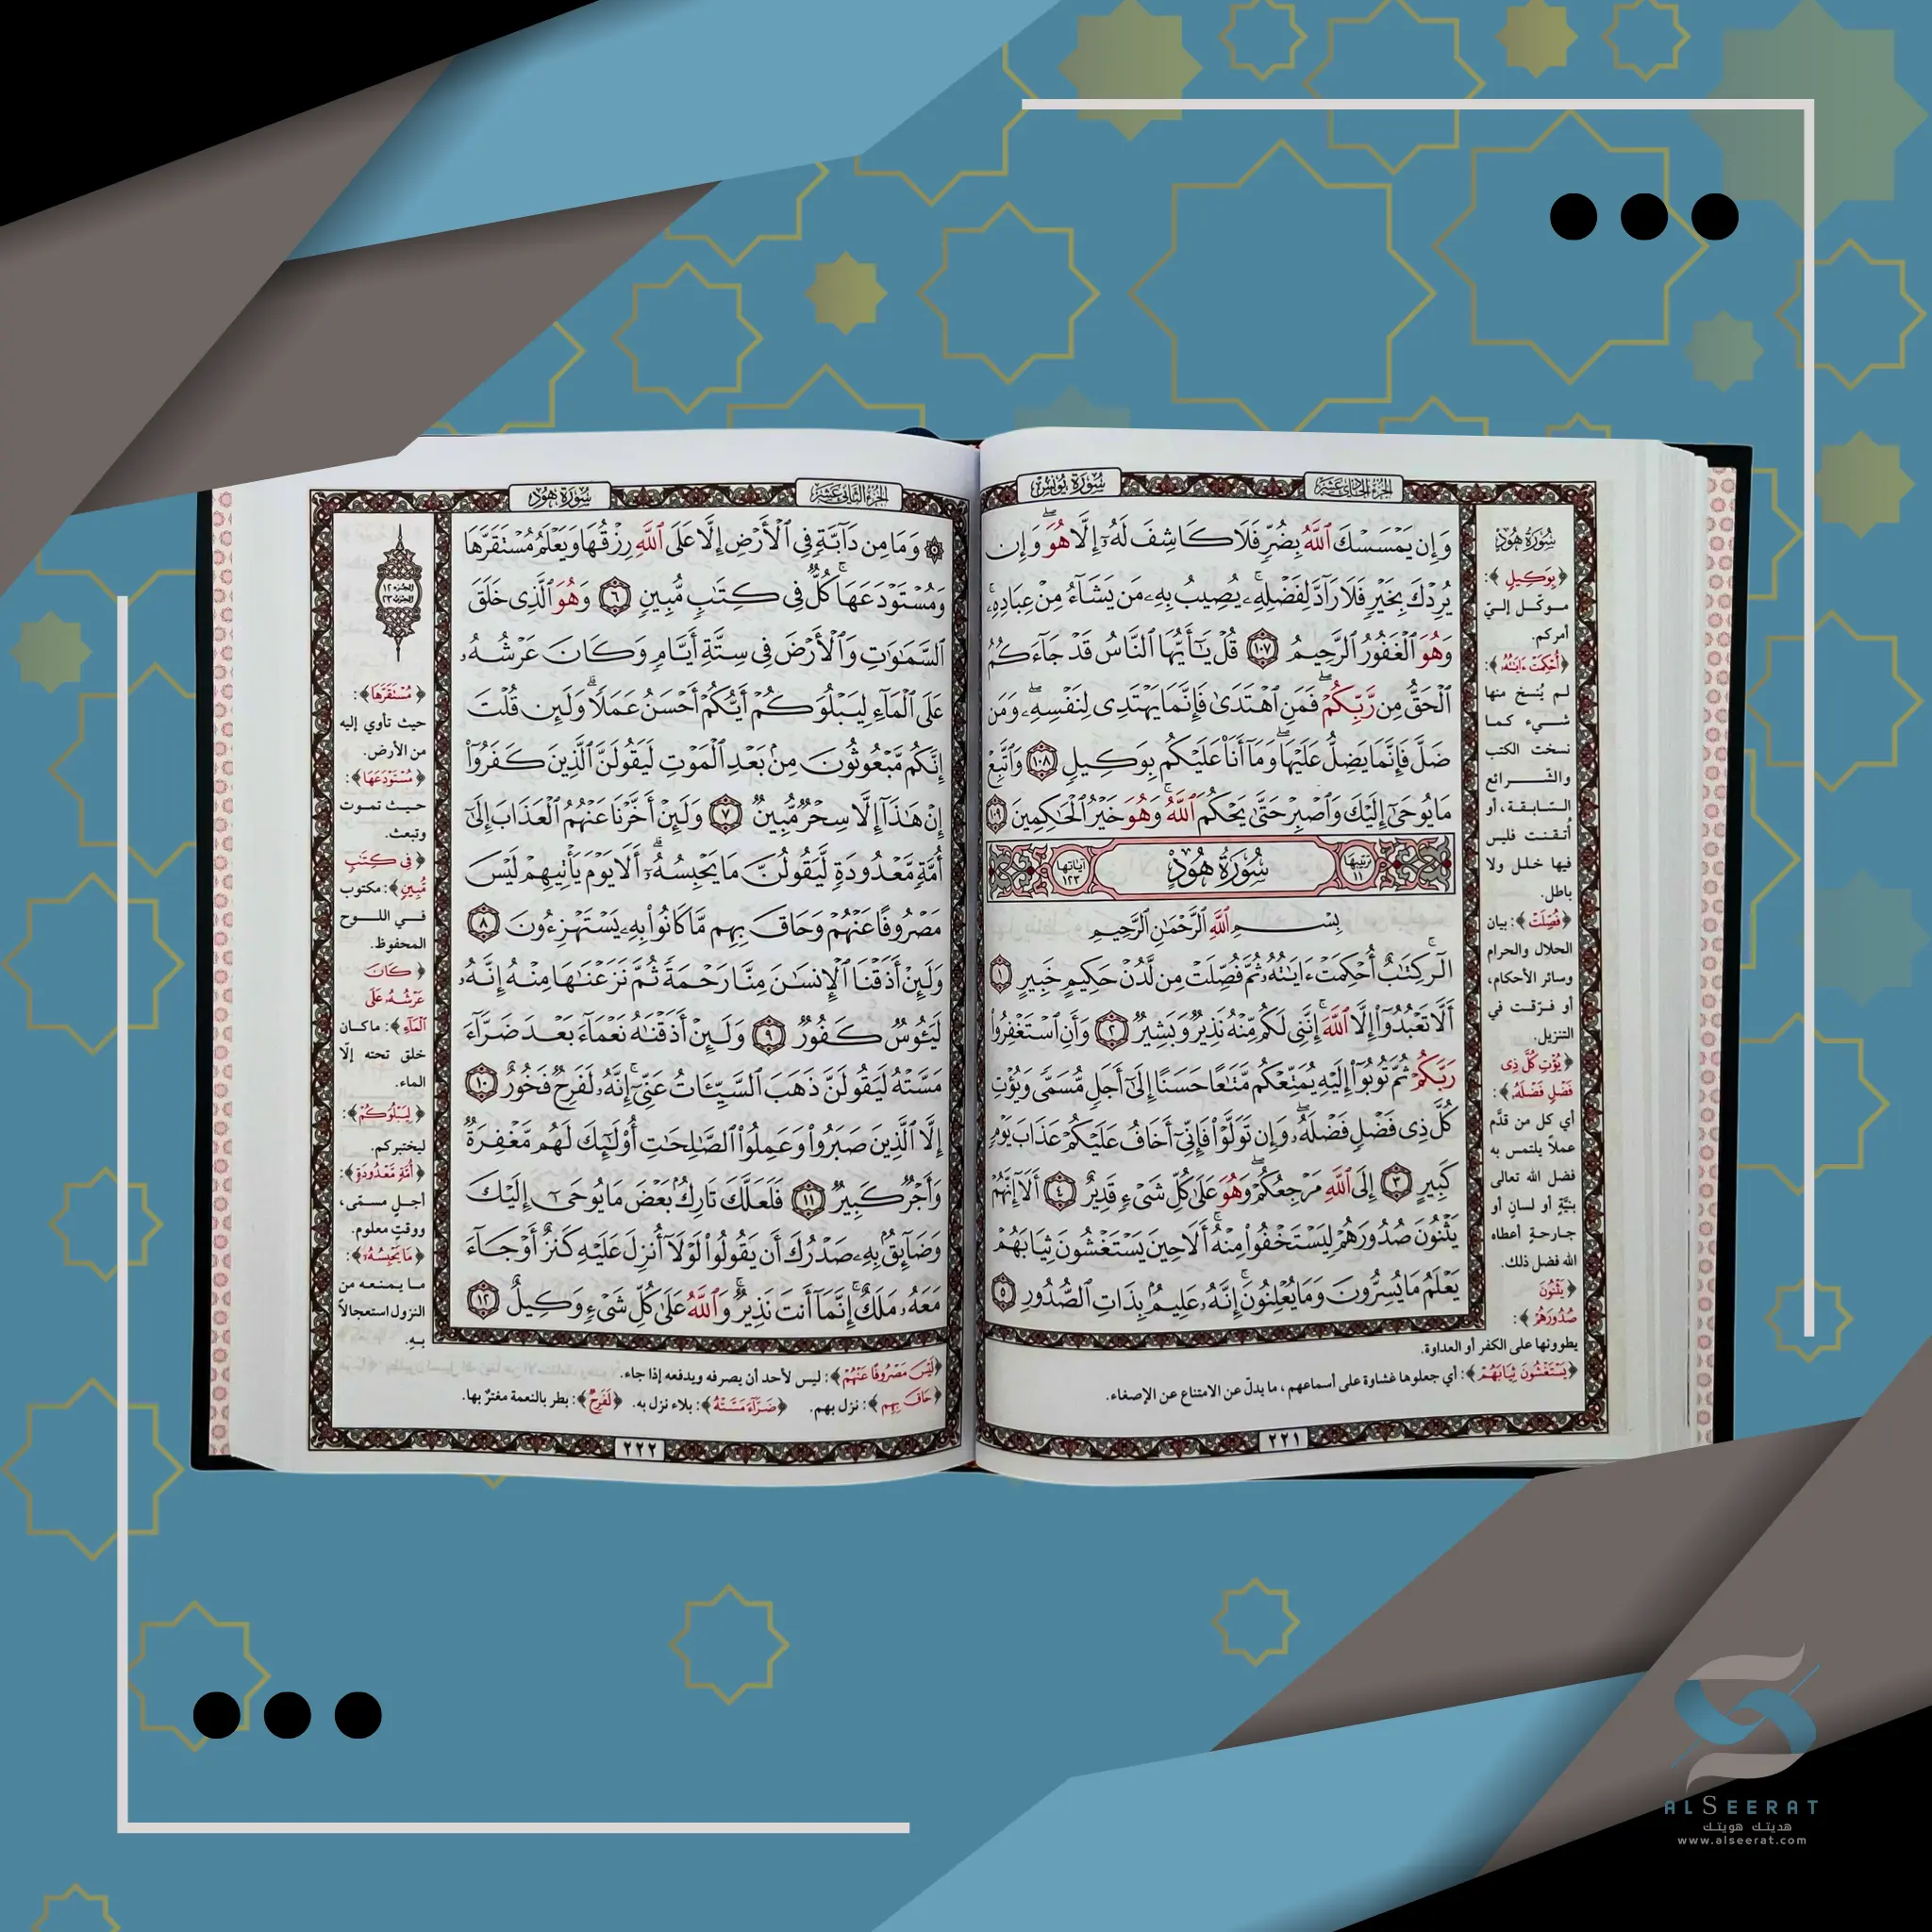 الجزء الحادي عشر
سورة يونس
وَإِن يَمْسَسْكَ ٱللَّهُ بِضُرٍّ فَلَا كَاشِفَ لَهُۥٓ إِلَّا هُوَ ۖ وَإِن
يُرِدْكَ بِخَيْرٍ فَلَا رَآدَّ لِفَضْلِهِۦ ۚ يُصِيبُ بِهِۦ مَن يَشَآءُ مِنْ عِبَادِهِۦ ۚ
وَهُوَ ٱلْغَفُورُ ٱلرَّحِيمُ ١٠٧ قُلْ يَٰٓأَيُّهَا ٱلنَّاسُ قَدْ جَآءَكُمُ
ٱلْحَقُّ مِن رَّبِّكُمْ ۖ فَمَنِ ٱهْتَدَىٰ فَإِنَّمَا يَهْتَدِى لِنَفْسِهِۦ ۖ وَمَن
ضَلَّ فَإِنَّمَا يَضِلُّ عَلَيْهَا ۖ وَمَآ أَنَا۠ عَلَيْكُم بِوَكِيلٍ ١٠٨ وَٱتَّبِعْ
مَا يُوحَىٰٓ إِلَيْكَ وَٱصْبِرْ حَتَّىٰ يَحْكُمَ ٱللَّهُ ۚ وَهُوَ خَيْرُ ٱلْحَٰكِمِينَ ١٠٩
ترتيبها ١١
سُورَةُ هُودٍ
آياتها ١٢٣
بِسْمِ ٱللَّهِ ٱلرَّحْمَٰنِ ٱلرَّحِيمِ
الٓر ۚ كِتَٰبٌ أُحْكِمَتْ ءَايَٰتُهُۥ ثُمَّ فُصِّلَتْ مِن لَّدُنْ حَكِيمٍ خَبِيرٍ ١
أَلَّا تَعْبُدُوٓا۟ إِلَّا ٱللَّهَ ۚ إِنَّنِى لَكُم مِّنْهُ نَذِيرٌ وَبَشِيرٌ ٢ وَأَنِ ٱسْتَغْفِرُوا۟
رَبَّكُمْ ثُمَّ تُوبُوٓا۟ إِلَيْهِ يُمَتِّعْكُم مَّتَٰعًا حَسَنًا إِلَىٰٓ أَجَلٍ مُّسَمًّى وَيُؤْتِ
كُلَّ ذِى فَضْلٍ فَضْلَهُۥ ۖ وَإِن تَوَلَّوْا۟ فَإِنِّىٓ أَخَافُ عَلَيْكُمْ عَذَابَ يَوْمٍ
كَبِيرٍ ٣ إِلَى ٱللَّهِ مَرْجِعُكُمْ ۖ وَهُوَ عَلَىٰ كُلِّ شَىْءٍ قَدِيرٌ ٤ أَلَآ إِنَّهُمْ
يَثْنُونَ صُدُورَهُمْ لِيَسْتَخْفُوا۟ مِنْهُ ۚ أَلَا حِينَ يَسْتَغْشُونَ ثِيَابَهُمْ
يَعْلَمُ مَا يُسِرُّونَ وَمَا يُعْلِنُونَ ۚ إِنَّهُۥ عَلِيمٌۢ بِذَاتِ ٱلصُّدُورِ ٥
سُورَةُ هُودٍ
﴿بِوَكِيلٍ﴾:
موكّل إليّ
أمركم.
﴿أُحْكِمَتْ ءَايَٰتُهُۥ﴾:
لم يُنسخ منها
شيء كما
نسخت الكتب
والشّرائع
السّابقة، أو
أُتقنت فليس
فيها خلل ولا
باطل.
﴿فُصِّلَتْ﴾: بيان
الحلال والحرام
وسائر الأحكام،
أو فرّقت في
التنزيل.
﴿يُؤْتِ كُلَّ ذِى
فَضْلٍ فَضْلَهُۥ﴾:
أي كل من قدَّم
عملاً يلتمس به
فضل الله تعالى
بنيَّةٍ أو لسانٍ أو
جارحةٍ أعطاه
الله فضل ذلك.
﴿يَثْنُونَ
صُدُورَهُمْ﴾:
يطوونها على الكفر أو العداوة.
﴿يَسْتَغْشُونَ ثِيَابَهُمْ﴾: أي جعلوها غشاوة على أسماعهم، ما يدلّ عن الامتناع عن الإصغاء.
٢٢١
الجزء الثاني عشر
سورة هود
۞ وَمَا مِن دَآبَّةٍ فِى ٱلْأَرْضِ إِلَّا عَلَى ٱللَّهِ رِزْقُهَا وَيَعْلَمُ مُسْتَقَرَّهَا
وَمُسْتَوْدَعَهَا ۚ كُلٌّ فِى كِتَٰبٍ مُّبِينٍ ٦ وَهُوَ ٱلَّذِى خَلَقَ
ٱلسَّمَٰوَٰتِ وَٱلْأَرْضَ فِى سِتَّةِ أَيَّامٍ وَكَانَ عَرْشُهُۥ
عَلَى ٱلْمَآءِ لِيَبْلُوَكُمْ أَيُّكُمْ أَحْسَنُ عَمَلًا ۗ وَلَئِن قُلْتَ
إِنَّكُم مَّبْعُوثُونَ مِنۢ بَعْدِ ٱلْمَوْتِ لَيَقُولَنَّ ٱلَّذِينَ كَفَرُوٓا۟
إِنْ هَٰذَآ إِلَّا سِحْرٌ مُّبِينٌ ٧ وَلَئِنْ أَخَّرْنَا عَنْهُمُ ٱلْعَذَابَ إِلَىٰٓ
أُمَّةٍ مَّعْدُودَةٍ لَّيَقُولُنَّ مَا يَحْبِسُهُۥٓ ۗ أَلَا يَوْمَ يَأْتِيهِمْ لَيْسَ
مَصْرُوفًا عَنْهُمْ وَحَاقَ بِهِم مَّا كَانُوا۟ بِهِۦ يَسْتَهْزِءُونَ ٨
وَلَئِنْ أَذَقْنَا ٱلْإِنسَٰنَ مِنَّا رَحْمَةً ثُمَّ نَزَعْنَٰهَا مِنْهُ إِنَّهُۥ
لَيَـُٔوسٌ كَفُورٌ ٩ وَلَئِنْ أَذَقْنَٰهُ نَعْمَآءَ بَعْدَ ضَرَّآءَ
مَسَّتْهُ لَيَقُولَنَّ ذَهَبَ ٱلسَّيِّـَٔاتُ عَنِّىٓ ۚ إِنَّهُۥ لَفَرِحٌ فَخُورٌ ١٠
إِلَّا ٱلَّذِينَ صَبَرُوا۟ وَعَمِلُوا۟ ٱلصَّٰلِحَٰتِ أُو۟لَٰٓئِكَ لَهُم مَّغْفِرَةٌ
وَأَجْرٌ كَبِيرٌ ١١ فَلَعَلَّكَ تَارِكٌۢ بَعْضَ مَا يُوحَىٰٓ إِلَيْكَ
وَضَآئِقٌۢ بِهِۦ صَدْرُكَ أَن يَقُولُوا۟ لَوْلَآ أُنزِلَ عَلَيْهِ كَنزٌ أَوْ جَآءَ
مَعَهُۥ مَلَكٌ ۚ إِنَّمَآ أَنتَ نَذِيرٌ ۚ وَٱللَّهُ عَلَىٰ كُلِّ شَىْءٍ وَكِيلٌ ١٢
الجزء ١٢
الحزب ٢٣
﴿مُسْتَقَرَّهَا﴾:
حيث تأوي إليه
من الأرض.
﴿مُسْتَوْدَعَهَا﴾:
حيث تموت
وتبعث.
﴿فِى كِتَٰبٍ
مُّبِينٍ﴾: مكتوب
في اللوح
المحفوظ.
﴿كَانَ
عَرْشُهُۥ عَلَى
ٱلْمَآءِ﴾: ما كان
خلق تحته إلّا
الماء.
﴿لِيَبْلُوَكُمْ﴾:
ليختبركم.
﴿أُمَّةٍ مَّعْدُودَةٍ﴾:
أجلٍ مسمّى،
ووقتٍ معلوم.
﴿مَا يَحْبِسُهُۥٓ﴾:
ما يمنعه من
النزول استعجالاً
به.
﴿لَيْسَ مَصْرُوفًا عَنْهُمْ﴾: ليس لأحد أن يصرفه ويدفعه إذا جاء.
﴿حَاقَ بِهِم﴾: نزل بهم. ﴿ضَرَّآءَ مَسَّتْهُ﴾: بلاء نزل به. ﴿لَفَرِحٌ﴾: بطر بالنعمة مغترٌ بها.
٢٢٢
ALSEERAT
هديتك هويتك
www.alseerat.com